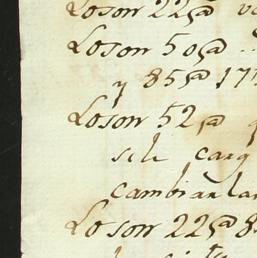 Loson 22@
Loson 50@
y 85@ 171
Loson 52@
sele carg
cambian lar
Loson 22@ 8